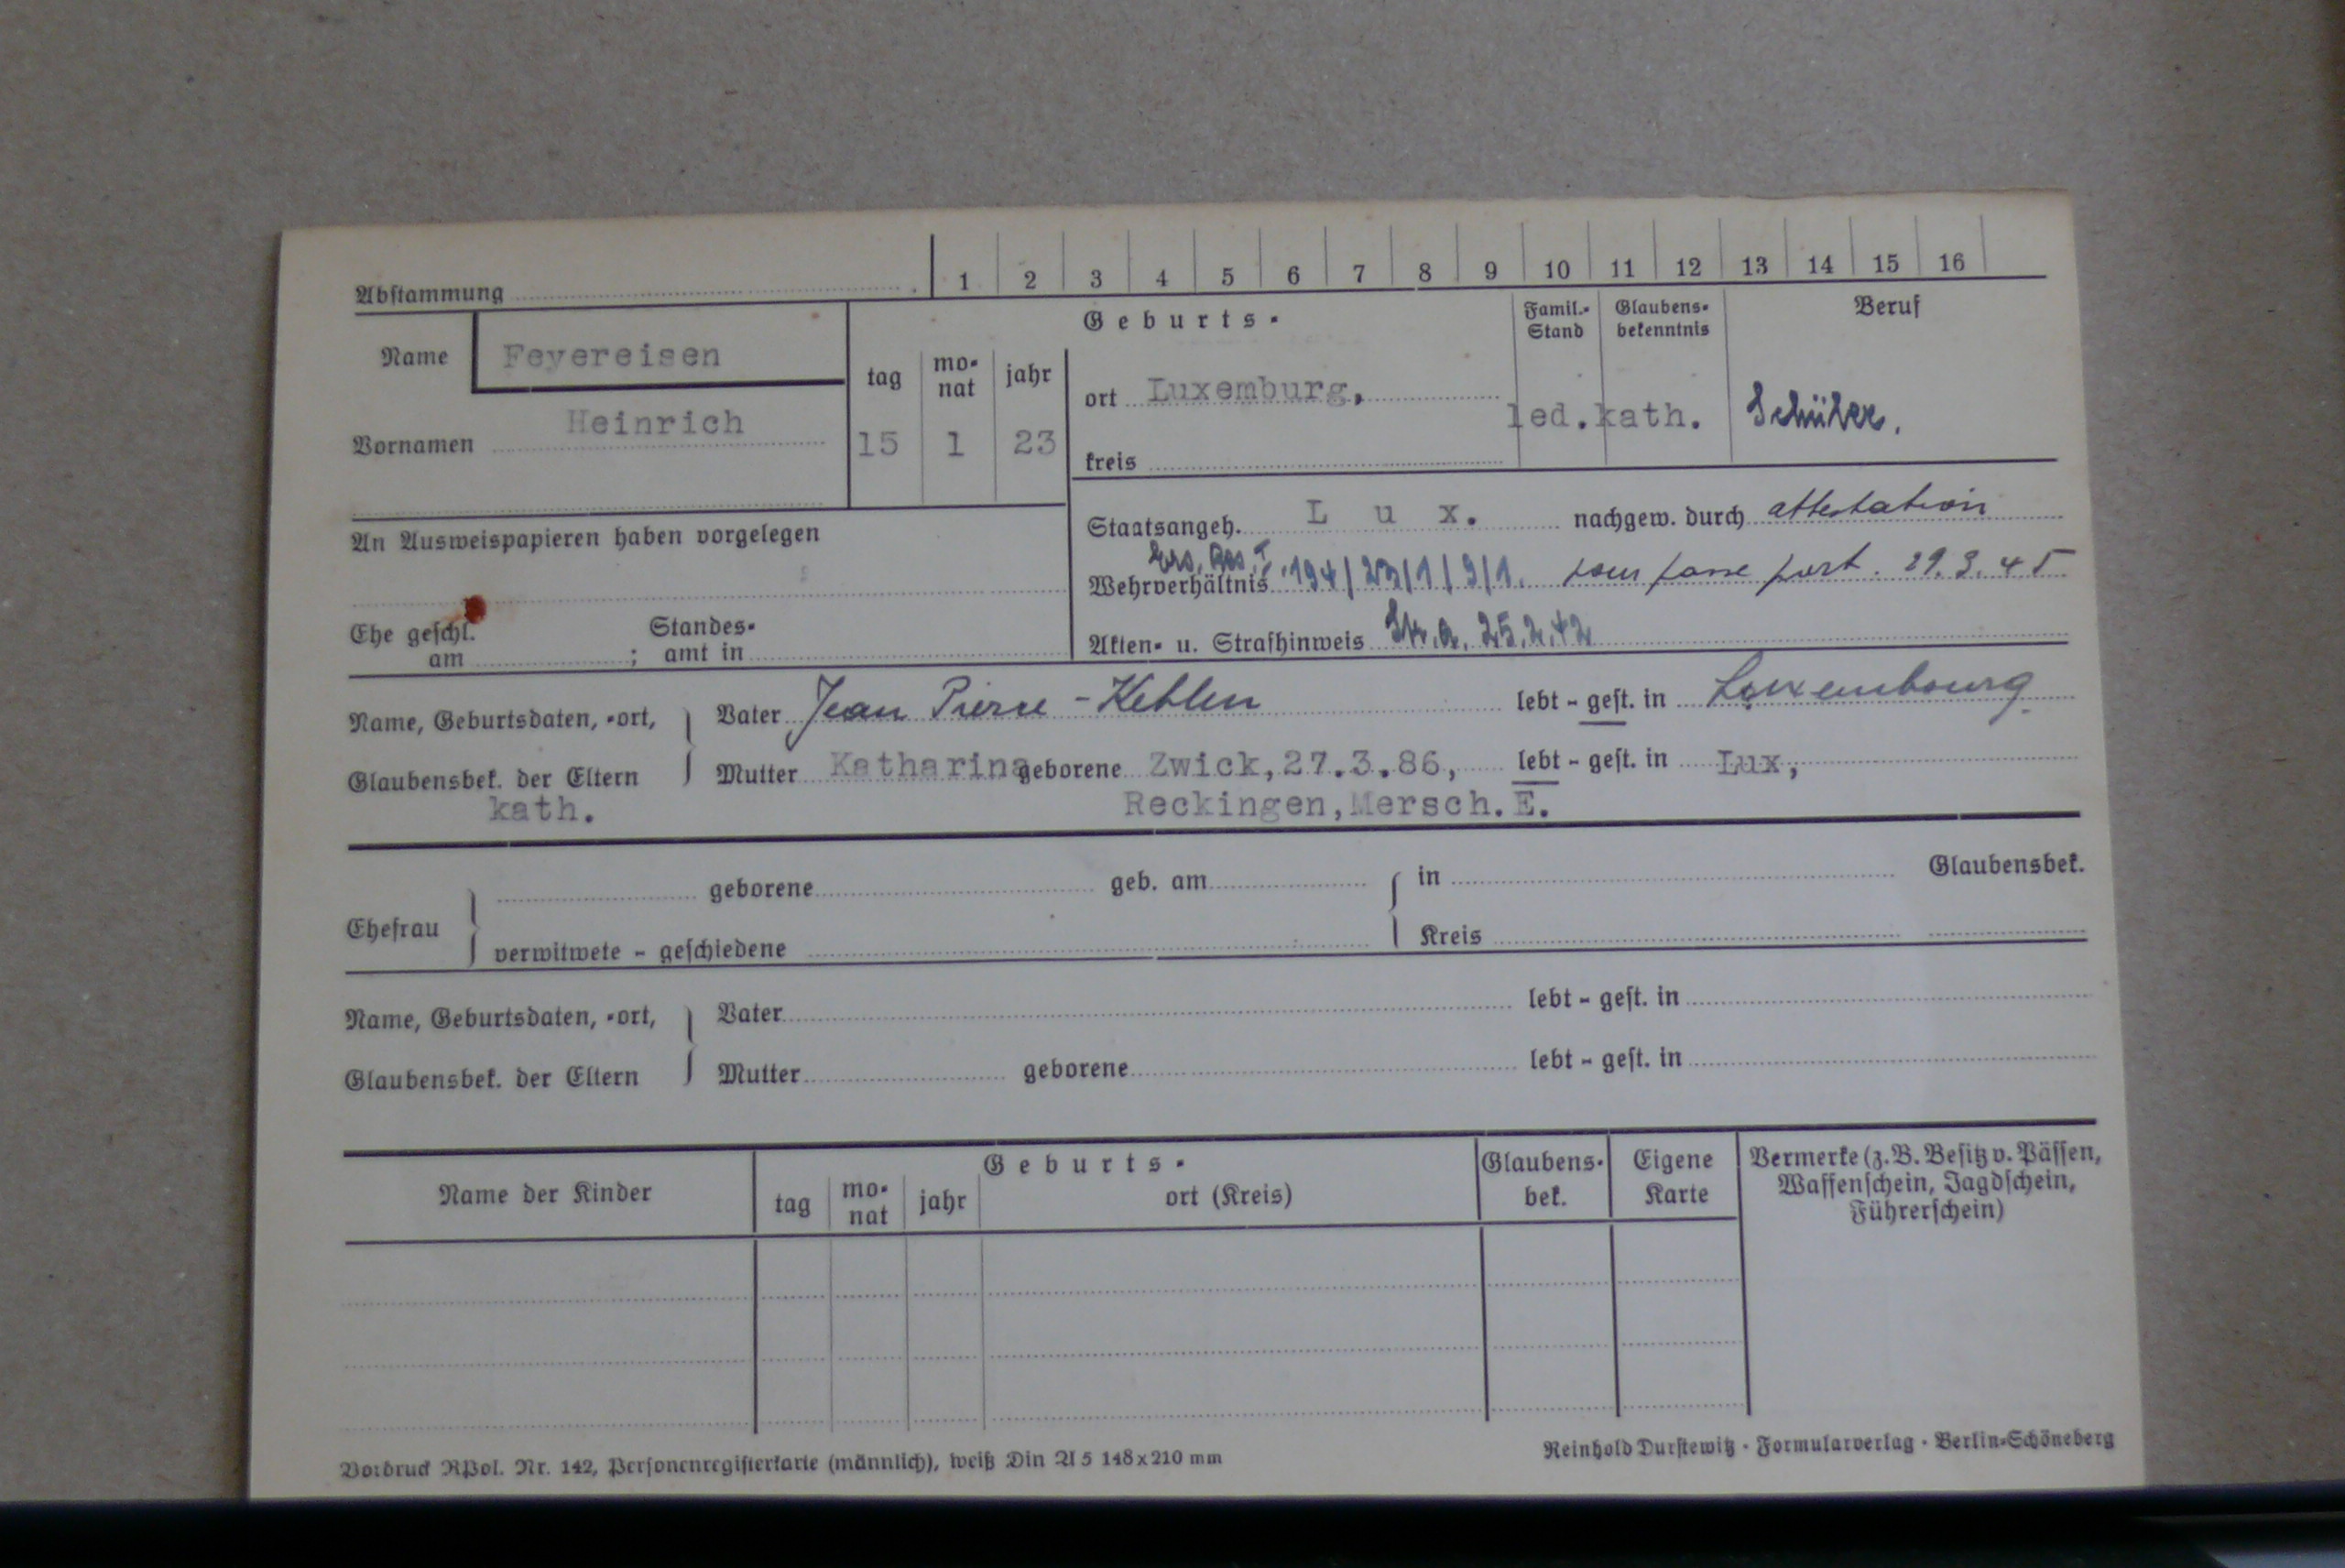 Abstammung 1 2 3 4 5 6 7 8 9 10 11 12 13 14 15 16
Name Feyereisen
Vornamen Heinrich
Geburts-
tag mo-nat jahr
15 1 23
ort Luxemburg,
kreis
Famil.-Stand
led.
Glaubens-bekenntnis
kath.
Beruf
Schüler.
An Ausweispapieren haben vorgelegen
Staatsangeh. L u x. nachgew. durch attestation
Ers. Res. I.
Wehrverhältnis 194/23/1/9/1. pour passe port. 29.3.45
Ehe geschl. am ; Standes-amt in
Akten- u. Strafhinweis 25.2.42
Name, Geburtsdaten, -ort, Glaubensbek. der Eltern
kath.
Vater Jean Pierre - Kehlen lebt - gest. in Luxembourg.
Mutter Katharina geborene Zwick, 27.3.86, lebt - gest. in Lux,
Reckingen, Mersch. E.
Ehefrau geborene geb. am in Glaubensbek.
verwitwete - geschiedene Kreis
Name, Geburtsdaten, -ort, Glaubensbek. der Eltern
Vater lebt - gest. in
Mutter geborene lebt - gest. in
Name der Kinder
Geburts-
tag mo-nat jahr ort (Kreis)
Glaubens-bek.
Eigene Karte
Vermerke (z. B. Besitz v. Pässen,
Waffenschein, Jagdschein,
Führerschein)
Vordruck RPol. Nr. 142, Personenregisterkarte (männlich), weiß Din A 5 148 x 210 mm
Reinhold Durstewitz · Formularverlag · Berlin-Schöneberg